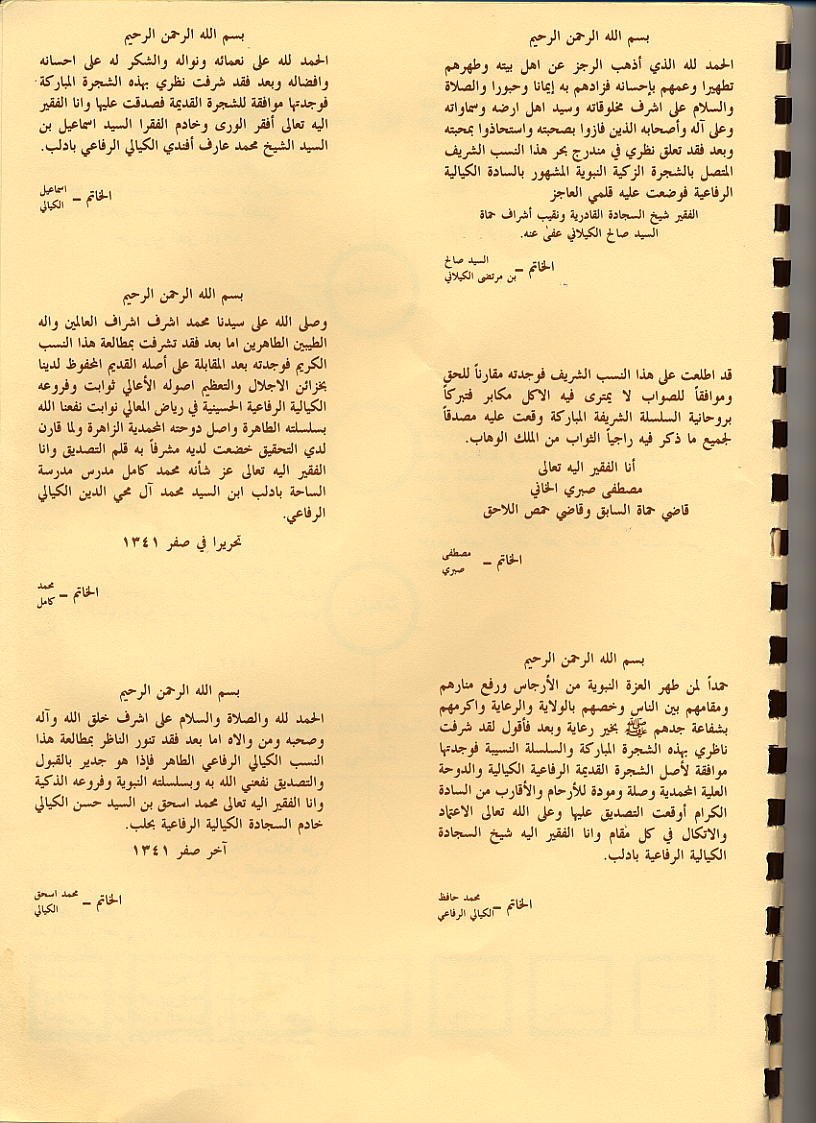 بسم الله الرحمن الرحيم
الحمد لله الذي أذهب الرجز عن اهل بيته وطهرهم
تطهيرا وعمهم بإحسانه فزادهم به إيمانا وحبورا والصلاة
والسلام على اشرف مخلوقاته وسيد اهل ارضه وسماواته
وعلى آله وأصحابه الذين فازوا بصحبته واستحاذوا بمحبته
وبعد فقد تعلق نظري في مندرج بحر هذا النسب الشريف
المتصل بالشجرة الزكية النبوية المشهور بالسادة الكيالية
الرفاعية فوضعت عليه قلمي العاجز
الفقير شيخ السجادة القادرية ونقيب أشراف حماة
السيد صالح الكيلاني عفى عنه.
الخاتم – السيد صالح
بن مرتضى الكيلاني
قد اطلعت على هذا النسب الشريف فوجدته مقارناً للحق
وموافقاً للصواب لا يمترى فيه الاكل مكابر فتبركاً
بروحانية السلسلة الشريفة المباركة وقعت عليه مصدقاً
لجميع ما ذكر فيه راجياً الثواب من الملك الوهاب.
أنا الفقير اليه تعالى
مصطفى صبري الخاني
قاضي حماة السابق وقاضي حمص اللاحق
الخاتم – مصطفى
صبري
بسم الله الرحمن الرحيم
حمداً لمن طهر العزة النبوية من الأرجاس ورفع منارهم
ومقامهم بين الناس وخصهم بالولاية والرعاية واكرمهم
بشفاعة جدهم ﷺ بخير رعاية وبعد فأقول لقد شرفت
ناظري بهذه الشجرة المباركة والسلسلة النسيبة فوجدتها
موافقة لأصل الشجرة القديمة الرفاعية الكيالية والدوحة
العلية المحمدية وصلة ومودة للأرحام والأقارب من السادة
الكرام أوقعت التصديق عليها وعلى الله تعالى الاعتماد
والاتكال في كل مقام وانا الفقير اليه شيخ السجادة
الكيالية الرفاعية بادلب.
الخاتم – محمد حافظ
الكيالي الرفاعي
بسم الله الرحمن الرحيم
الحمد لله على نعمائه ونواله والشكر له على احسانه
وافضاله وبعد فقد شرفت نظري بهذه الشجرة المباركة
فوجدتها موافقة للشجرة القديمة فصدقت عليها وانا الفقير
اليه تعالى أفقر الورى وخادم الفقرا السيد اسماعيل بن
السيد الشيخ محمد عارف أفندي الكيالي الرفاعي بادلب.
الخاتم – اسماعيل
الكيالي
بسم الله الرحمن الرحيم
وصلى الله على سيدنا محمد اشرف اشراف العالمين واله
الطيبين الطاهرين اما بعد فقد تشرفت بمطالعة هذا النسب
الكريم فوجدته بعد المقابلة على أصله القديم المحفوظ لدينا
بخزائن الاجلال والتعظيم اصوله الأعالي ثوابت وفروعه
الكيالية الرفاعية الحسينية في رياض المعالي نوابت نفعنا الله
بسلسلته الطاهرة واصل دوحته المحمدية الزاهرة ولما قارن
لدي التحقيق خضعت لديه مشرفاً به قلم التصديق وانا
الفقير اليه تعالى عز شأنه محمد كامل مدرس مدرسة
الساحة بادلب ابن السيد محمد آل محي الدين الكيالي
الرفاعي.
تحريرا في صفر ١٣٤١
الخاتم – محمد
كامل
بسم الله الرحمن الرحيم
الحمد لله والصلاة والسلام على اشرف خلق الله وآله
وصحبه ومن والاه اما بعد فقد تنور الناظر بمطالعة هذا
النسب الكيالي الرفاعي الطاهر فإذا هو جدير بالقبول
والتصديق نفعني الله به وبسلسلته النبوية وفروعه الذكية
وانا الفقير اليه تعالى محمد اسحق بن السيد حسن الكيالي
خادم السجادة الكيالية الرفاعية بحلب.
آخر صفر ١٣٤١
الخاتم – محمد اسحق
الكيالي